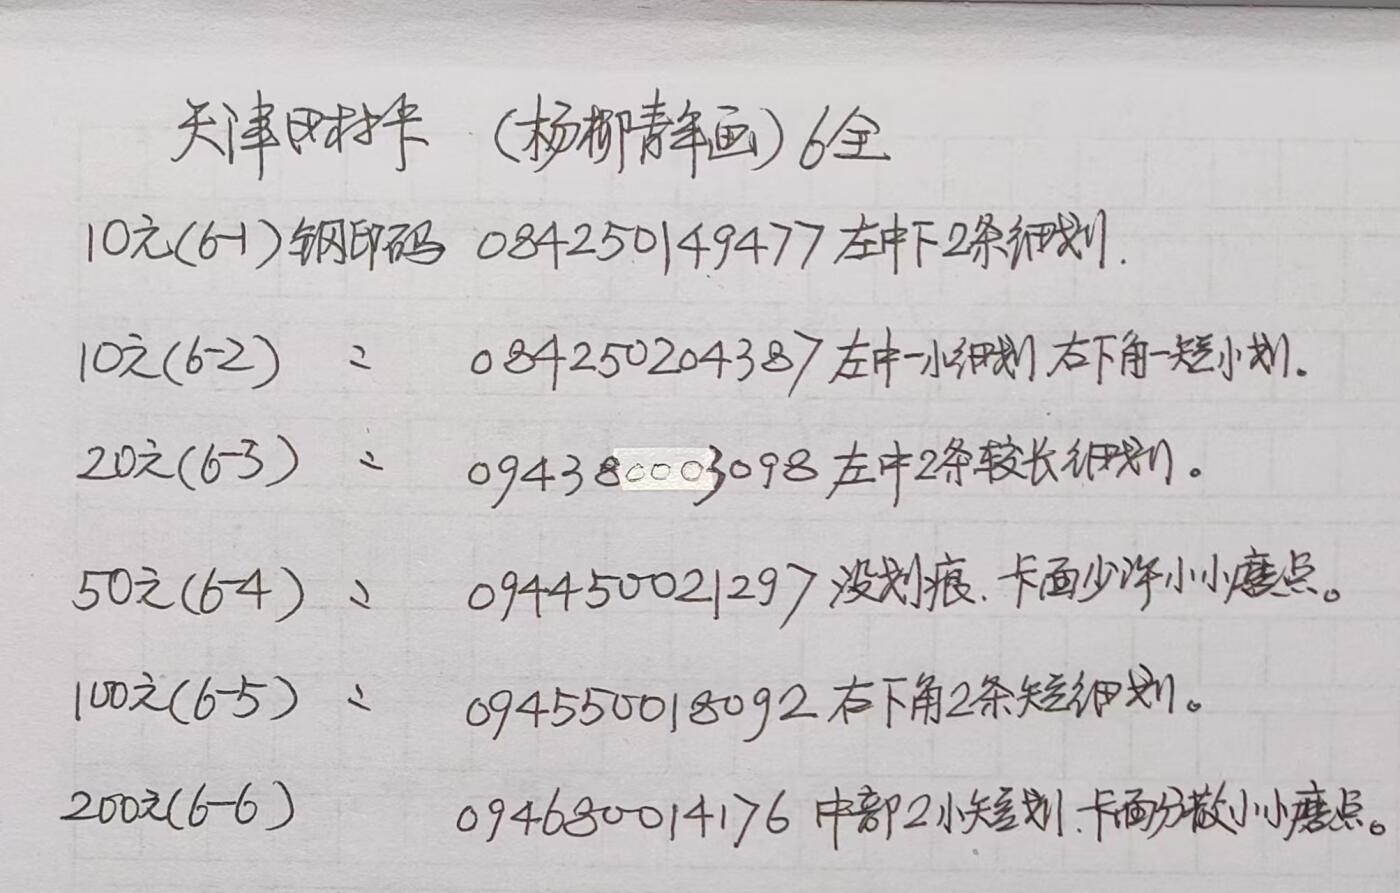 天津田村卡 (杨柳青年画)6全
10元(6-1)钢印码 084250149477左中下2条细划.
10元(6-2) 〃 084250204387左中一小细划 右下角一短小划。
20元(6-3) 〃 094380003098左中2条较长细划。
50元(6-4) 〃 094450021297没划痕.卡面少许小小磨点。
100元(6-5) 〃 094550018092右下角2条短细划。
200元(6-6) 094680014176 中部2小短划.卡面分散小小磨点。